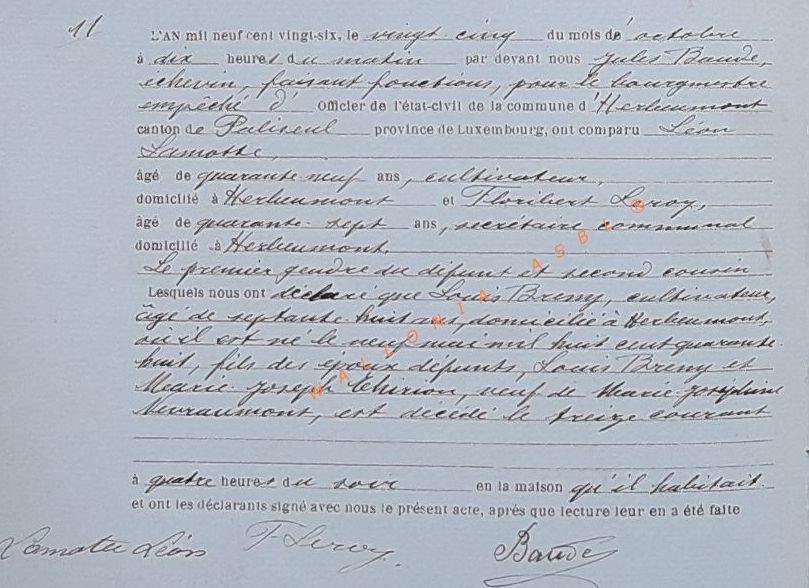 11
L'AN mil neuf cent vingt-six, le vingt cinq du mois de octobre
à dix heures du matin par devant nous Jules Baude,
échevin, faisant fonctions, pour le bourgmestre
empêché d' Officier de l'état-civil de la commune d'Herbeumont
canton de Paliseul province de Luxembourg, ont comparu Léon
Lamotte,
âgé de quarante-neuf ans, cultivateur,
domicilié à Herbeumont et Floribert Leroy,
âgé de quarante-sept ans, secrétaire communal
domicilié à Herbeumont.
Le premier gendre du défunt et second cousin
Lesquels nous ont déclaré que Louis Breny, cultivateur,
âgé de septante-huit ans, domicilié à Herbeumont,
où il est né le neuf mai mil huit cent quarante-
huit, fils des époux défunts, Louis Breny et
Marie-Joseph Thirion, veuf de Marie-Joséphine
Nevraumont, est décédé le treize courant
à quatre heures du soir en la maison qu'il habitait.
et ont les déclarants signé avec nous le présent acte, après que lecture leur en a été faite
Lamotte Léon F Leroy. Baude
WALLONIA ASBL ©